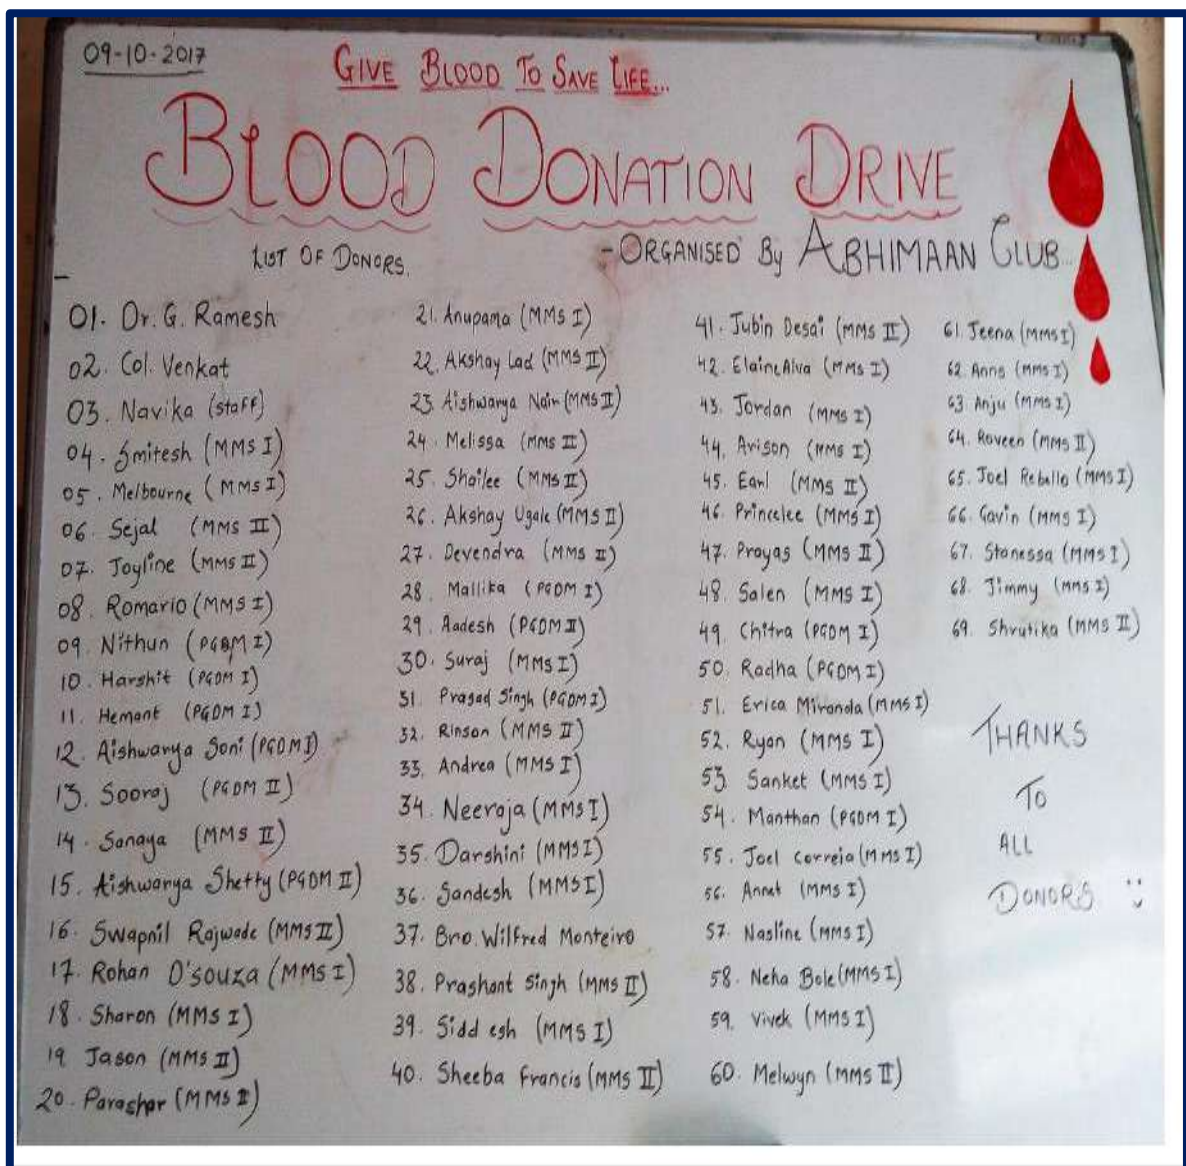 09-10-2017
GIVE BLOOD TO SAVE LIFE...
BLOOD DONATION DRIVE
LIST OF DONORS.
- ORGANISED By ABHIMAAN CLUB...
01. Dr. G. Ramesh
02. Col. Venkat
03. Navika (staff)
04. Smitesh (MMS I)
05. Melbourne (MMS I)
06. Sejal (MMS II)
07. Joyline (MMS II)
08. Romario (MMS I)
09. Nithun (PGDM I)
10. Harshit (PGDM I)
11. Hemant (PGDM I)
12. Aishwarya Soni (PGDM I)
13. Sooraj (PGDM II)
14. Sanaya (MMS II)
15. Aishwarya Shetty (PGDM II)
16. Swapnil Rajwade (MMS II)
17. Rohan D'souza (MMS I)
18. Sharon (MMS I)
19 Jason (MMS II)
20. Parashar (MMS II)
21. Anupama (MMS I)
22. Akshay Lad (MMS II)
23. Aishwarya Nair (MMS II)
24. Melissa (MMS II)
25. Shailee (MMS II)
26. Akshay Ugale (MMS II)
27. Devendra (MMS II)
28. Mallika (PGDM I)
29. Aadesh (PGDM II)
30. Suraj (MMS I)
31. Prasad Singh (PGDM I)
32. Rinson (MMS II)
33. Andrea (MMS I)
34. Neeraja (MMS I)
35. Darshini (MMS I)
36. Sandesh (MMS I)
37. Bro. Wilfred Monteiro
38. Prashant Singh (MMS II)
39. Siddesh (MMS I)
40. Sheeba Francis (MMS II)
41. Jubin Desai (MMS II)
42. Elaine Alva (MMS I)
43. Jordan (MMS I)
44. Arison (MMS I)
45. Earl (MMS II)
46. Princelee (MMS I)
47. Prayas (MMS II)
48. Salen (MMS I)
49. Chitra (PGDM I)
50. Radha (PGDM I)
51. Erica Miranda (MMS I)
52. Ryan (MMS I)
53. Sanket (MMS I)
54. Manthan (PGDM I)
55. Joel Correia (MMS I)
56. Annet (MMS I)
57. Nasline (MMS I)
58. Neha Bole (MMS I)
59. Vivek (MMS I)
60. Melwyn (MMS II)
61. Jeena (MMS I)
62. Anns (MMS I)
63 Anju (MMS I)
64. Raveen (MMS II)
65. Joel Rebello (MMS I)
66. Gavin (MMS I)
67. Stanessa (MMS I)
68. Jimmy (MMS I)
69. Shrutika (MMS II)
THANKS
TO
ALL
DONORS